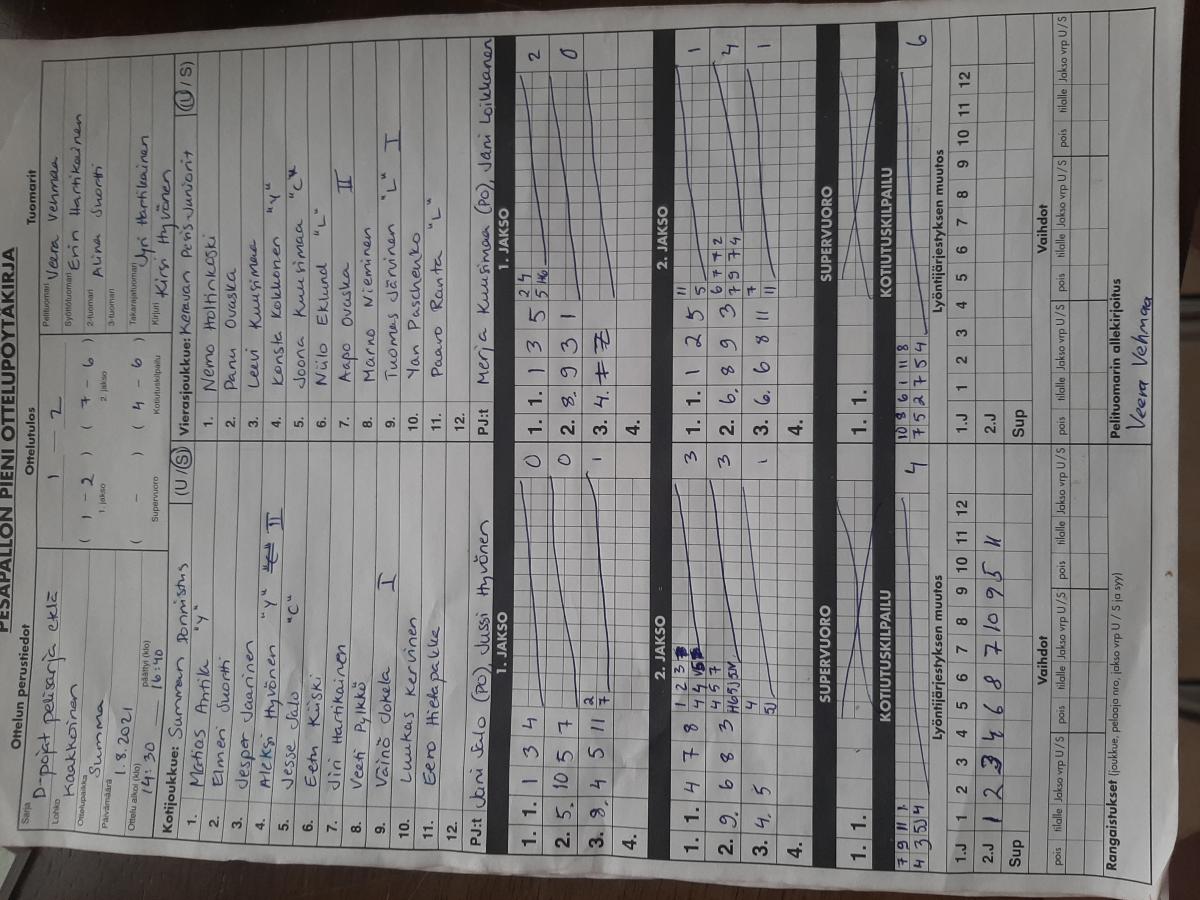 PESÄPALLON PIENI OTTELUPÖYTÄKIRJA
Ottelun perustiedot
Sarja D-pojat pelisarja etelä
Lohko Kaakkoinen
Ottelupaikka Summa
Päivämäärä 1.8.2021
Ottelu alkoi (klo) 14:30 päättyi (klo) 16:40
Ottelutulos
1 - 2
( 1 - 2 ) ( 7 - 6 )
1. jakso 2. jakso
( - ) ( 4 - 6 )
Supervuoro Kotiutuskilpailu
Tuomarit
Pelituomari Veera Vehmaa
Syöttötuomari Erin Hartikainen
2-tuomari Alina Suortti
3-tuomari
Takarajatuomari Jyri Hartikainen
Kirjuri Kirsi Hyvönen
Kotijoukkue: Summan Ponnistus (U/S)
1. Matias Antila "Y"
2. Elmeri Suortti
3. Jesper Jaarinen
4. Aleksi Hyvönen "Y" II
5. Jesse Salo "C"
6. Eeth Kiiski
7. Jiri Hartikainen
8. Veeti Pylkkö
9. Väinö Jokela I
10. Luukas Kervinen
11. Eero Hietapakka
12.
PJ:t Jani Salo (PO), Jussi Hyvönen
Vierasjoukkue: Keravan Pesis-Juniorit (U/S)
1. Nemo Holtinkoski
2. Panu Ovaska
3. Leevi Kuusimaa
4. Konsta Kokkonen "Y"
5. Joona Kuusimaa "C"
6. Niilo Eklund "L"
7. Aapo Ovaska II
8. Marno Nieminen
9. Tuomas Järvinen "L" I
10. Yan Paschenko
11. Paavo Ranta "L"
12.
PJ:t Merja Kuusimaa (PO), Jani Loikkanen
1. JAKSO
1. 1. 1 3 4 0
2. 5. 10 5 7 0
3. 8. 4 5 11 2 7 1
4.
1. JAKSO
1. 1. 1 3 5 2 4 2
2. 8. 9 3 1 0
3. 4.
4.
2. JAKSO
1. 1. 4 7 8 1 2 3 3
2. 9. 6 8 3 4 5 7 3
3. 4. 5 4 1
4.
2. JAKSO
1. 1. 1 2 5 11 5 1
2. 6. 8 9 3 6 7 7 2 7 9 7 4 4
3. 6. 6 8 11 7 11 1
4.
SUPERVUORO
1. 1.
SUPERVUORO
1. 1.
KOTIUTUSKILPAILU
7 9 11 1
4 3 5J 4 4
KOTIUTUSKILPAILU
10 8 6 1 11 8
7 5 2 7 5 4 6
Lyöntijärjestyksen muutos
1.J 1 2 3 4 5 6 7 8 9 10 11 12
2.J 1 2 3 4 6 8 7 10 9 5 11
Sup
Lyöntijärjestyksen muutos
1.J 1 2 3 4 5 6 7 8 9 10 11 12
2.J
Sup
Vaihdot
pois tilalle Jakso vrp U/S pois tilalle Jakso vrp U/S pois tilalle Jakso vrp U/S
Vaihdot
pois tilalle Jakso vrp U/S pois tilalle Jakso vrp U/S pois tilalle Jakso vrp U/S
Rangaistukset (joukkue, pelaaja nro, jakso vrp U / S ja syy)
Pelituomarin allekirjoitus
Veera Vehmaa